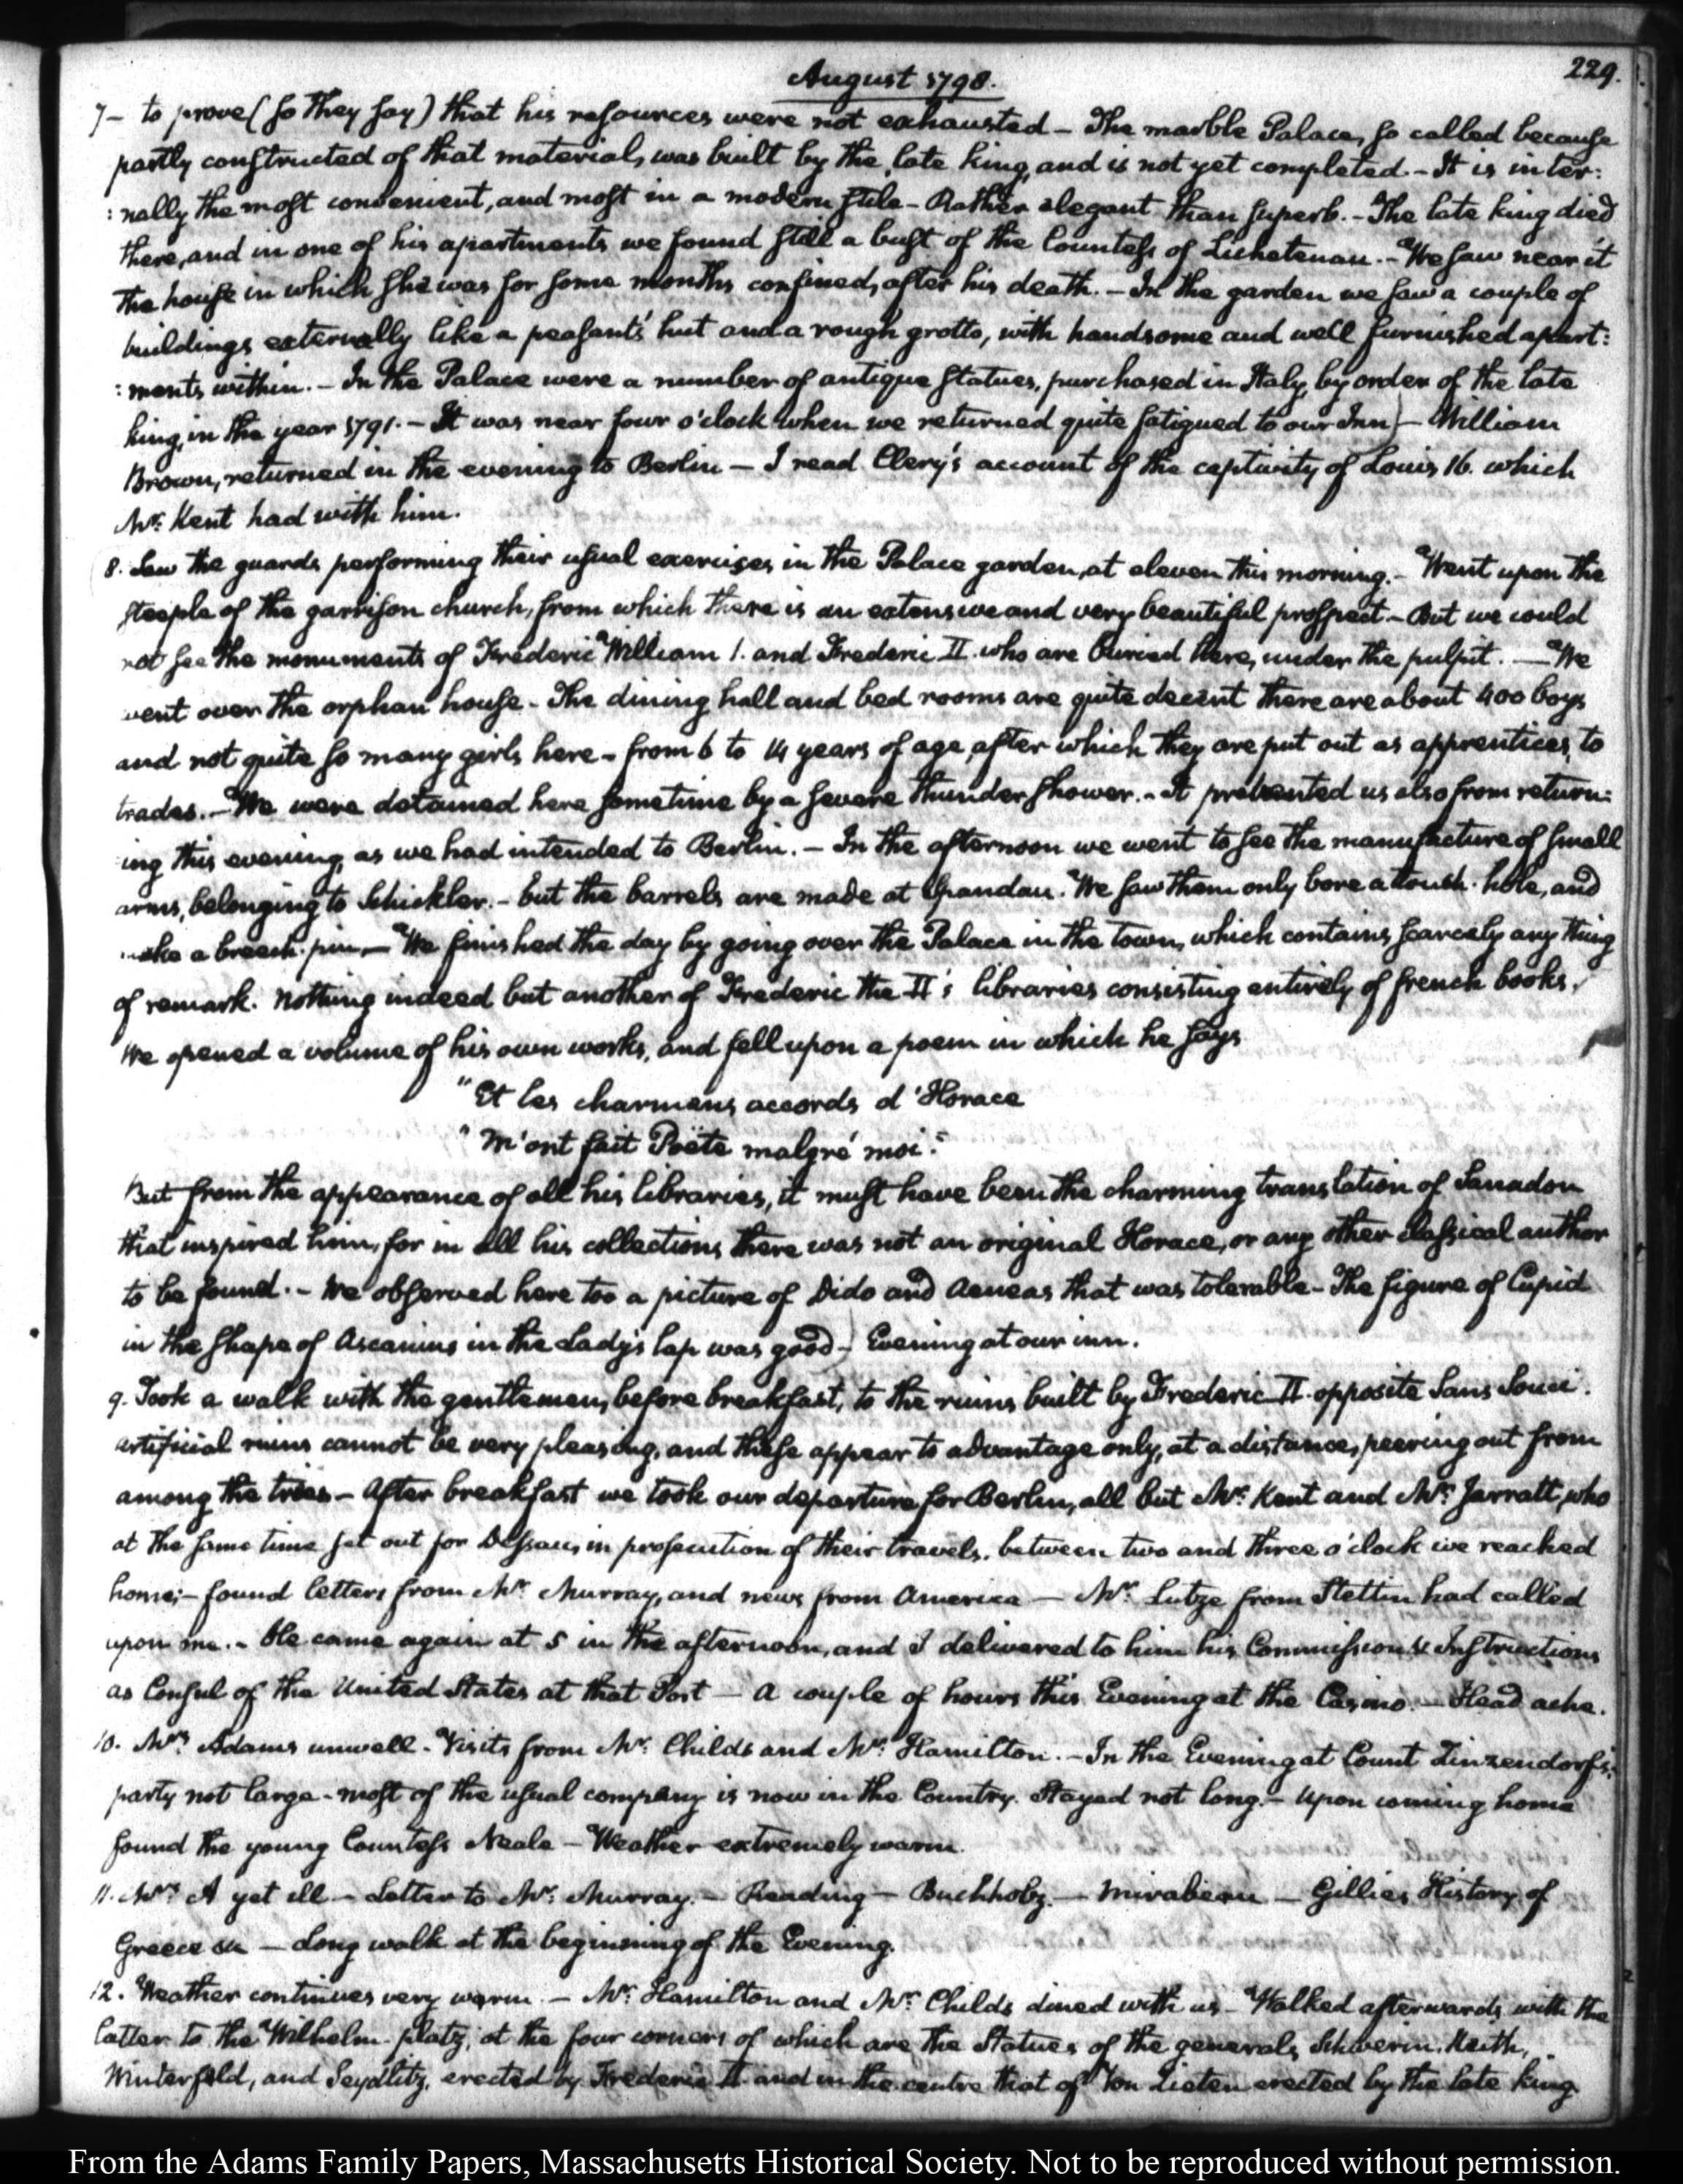 August 1798.
229.
7- to prove (so they say) that his resources were not exhausted - The marble Palace, so called because
partly constructed of that material, was built by the late king, and is not yet completed. - It is inter:
:nally the most convenient, and most in a modern stile - Rather elegant than superb. - The late king died
there, and in one of his apartments we found still a bust of the Countess of Lichetenau. - We saw near it
the house in which she was for some months confined, after his death. - In the garden we saw a couple of
buildings externally like a peasants' hut and a rough grotto, with handsome and well furnished apart:
:ments within. - In the Palace were a number of antique statues, purchased in Italy, by order of the late
king, in the year 1791. - It was near four o'clock when we returned quite fatigued to our Inn) - William
Brown, returned in the evening to Berlin - I read Clery's account of the captivity of Louis 16. which
Mr: Kent had with him.
8. Saw the guards performing their usual exercises in the Palace garden, at eleven this morning. - Went upon the
steeple of the garrison church, from which there is an extensive and very beautiful prospect. - But we could
not see the monuments of Frederic William 1. and Frederic II. who are buried there, under the pulpit. - We
went over the orphan house - The dining hall and bed rooms are quite decent there are about 400 boys
and not quite so many girls here - from 6 to 14 years of age, after which they are put out as apprentices, to
trades. - We were detained here sometime by a severe thunder shower. - It prevented us also from return:
:ing this evening, as we had intended to Berlin. - In the afternoon we went to see the manufacture of small
arms, belonging to Schickler. - but the barrels are made at Spandau. We saw them only bore a touch-hole, and
make a breech-pin - We finished the day by going over the Palace in the town, which contains scarcely any thing
of remark. Nothing indeed but another of Frederic the II's libraries consisting entirely of french books.
We opened a volume of his own works, and fell upon a poem in which he says
"Et les charmans accords d'Horace
"M'ont fait Poëte malgré moi."
But from the appearance of all his libraries, it must have been the charming translation of Sanadon
that inspired him, for in all his collections there was not an original Horace, or any other classical author
to be found. - We observed here too a picture of Dido and Aeneas that was tolerable - The figure of Cupid
in the shape of Ascanius in the Lady's lap was good -) Evening at our inn.
9. Took a walk with the gentlemen, before breakfast, to the ruins built by Frederic II. opposite Sans Souci.
artificial ruins cannot be very pleasing, and these appear to advantage only, at a distance, peering out from
among the trees - After breakfast we took our departure for Berlin, all but Mr: Kent and Mr: Jarratt, who
at the same time set out for Dessau, in prosecution of their travels. between two and three o'clock we reached
home; - found letters from Mr: Murray, and news from America - Mr: Lutze from Stettin had called
upon me. - He came again at 5 in the afternoon, and I delivered to him his Commission & Instructions
as Consul of the United States at that Port - A couple of hours this Evening at the Casino. - Head ache.
10. Mrs: Adams unwell - Visits from Mr: Childs and Mr: Hamilton. - In the Evening at Count Zinzendorf's;
party not large - most of the usual company is now in the Country. Stayed not long. - Upon coming home
found the young Countess Neale - Weather extremely warm.
11. Mrs: A yet ill - Letter to Mr: Murray. - Reading - Buchholz. - Mirabeau - Gillies History of
Greece &c - Long walk at the beginning of the Evening.
12. Weather continues very warm - Mr: Hamilton and Mr: Childs dined with us - Walked afterwards with the
latter to the Wilhelm-platz, at the four corners of which are the Statues of the generals Schwerin, Keith,
Winterfeld, and Seydlitz, erected by Frederic II. and in the centre that of Von Zieten erected by the late king.
From the Adams Family Papers, Massachusetts Historical Society. Not to be reproduced without permission.